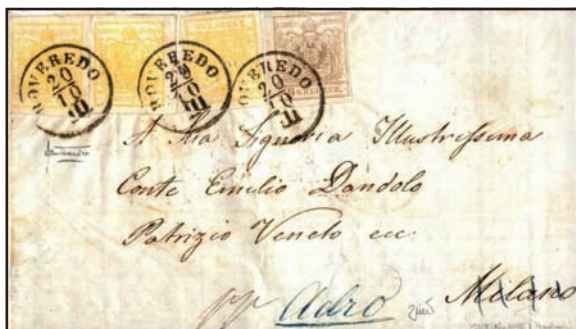 ROVEREDO ROVEREDO ROVEREDO
20/10 20/10 20/10
E E E
A Sua Signoria Illustrissima
Conte Emilio Dandolo
Patrizio Veneto ecc
pp Adro Milano